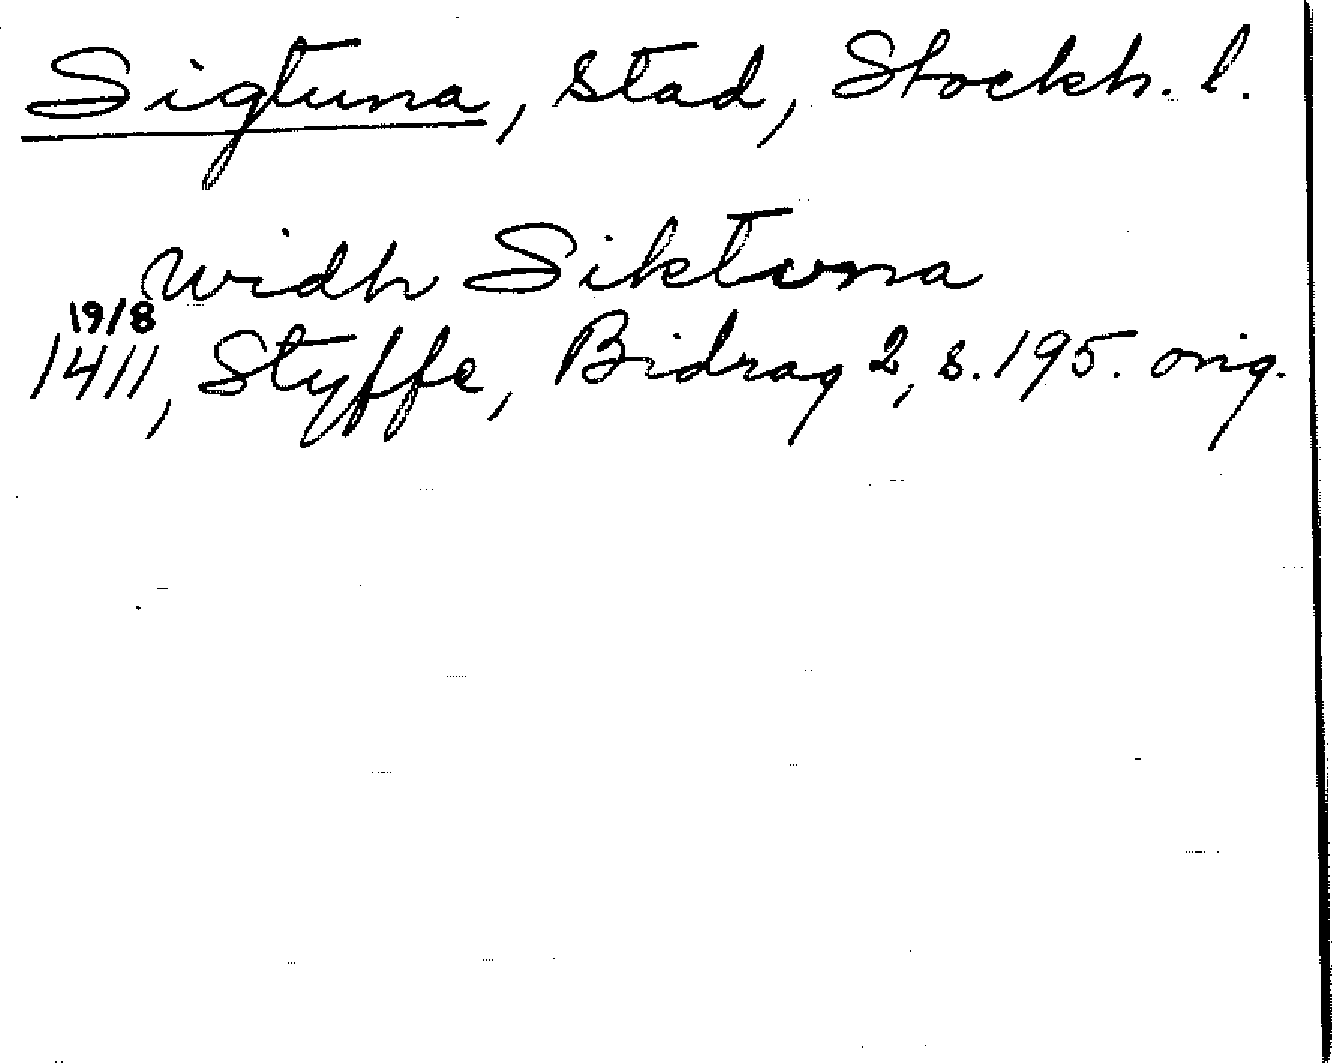 Sigtuna, stad, Stockh. l.
widh Siktuna
19/8
1411, Styffe, Bidrag 2, s. 195. orig.